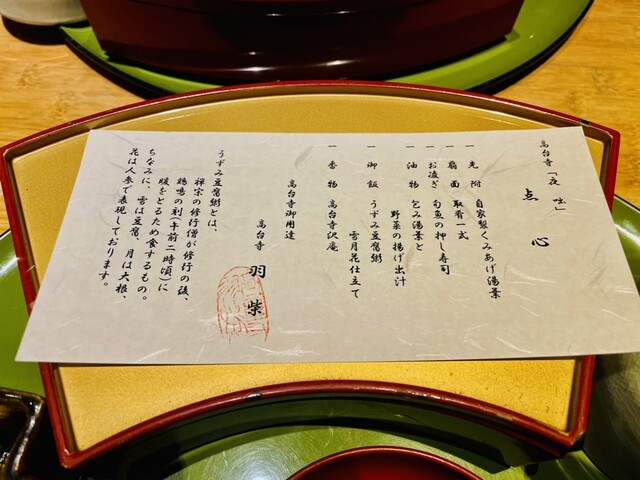 高台寺「夜咄」
点心
一 先附 自家製くみあげ湯葉
一 扇面 取肴一式
一 お凌ぎ 旬魚の押し寿司
一 油物 包み湯葉と
野菜の揚げ出汁
一 御飯 うずみ豆腐粥
雪月花仕立て
一 香物 高台寺沢庵
高台寺御用達
高台寺 羽柴
うずみ豆腐粥とは、
禅宗の修行僧が修行の後、
鶏鳴の刻(午前二時頃)に
暖をとるため食するもの。
ちなみに、雪は豆腐、月は大根、
花は人参で表現しております。